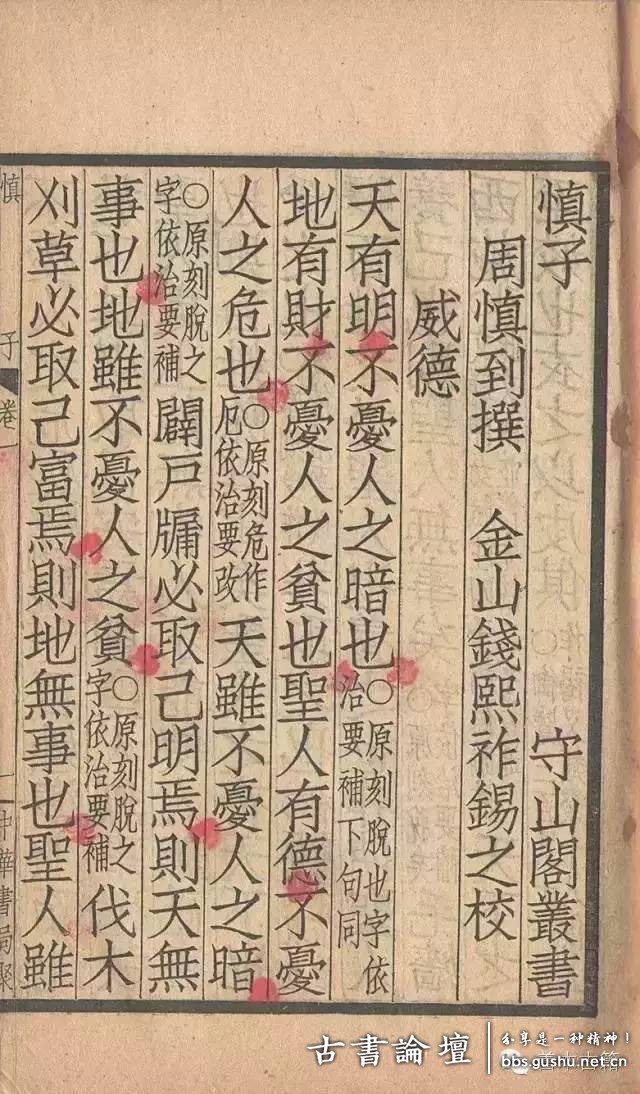 慎子 守山閣叢書
周慎到撰 金山錢熙祚錫之校
威德
天有明不憂人之暗也○原刻脫也字依治要補下句同
地有財不憂人之貧也聖人有德不憂
人之危也○原刻危作厄依治要改天雖不憂人之暗
○原刻脫之字依治要補闢戶牖必取己明焉則天無
事也地雖不憂人之貧○原刻脫之字依治要補伐木
刈草必取己富焉則地無事也聖人雖
慎子 卷 一 中華書局聚
古書論壇
分享是一种精神!
bbs.gushu.net.cn